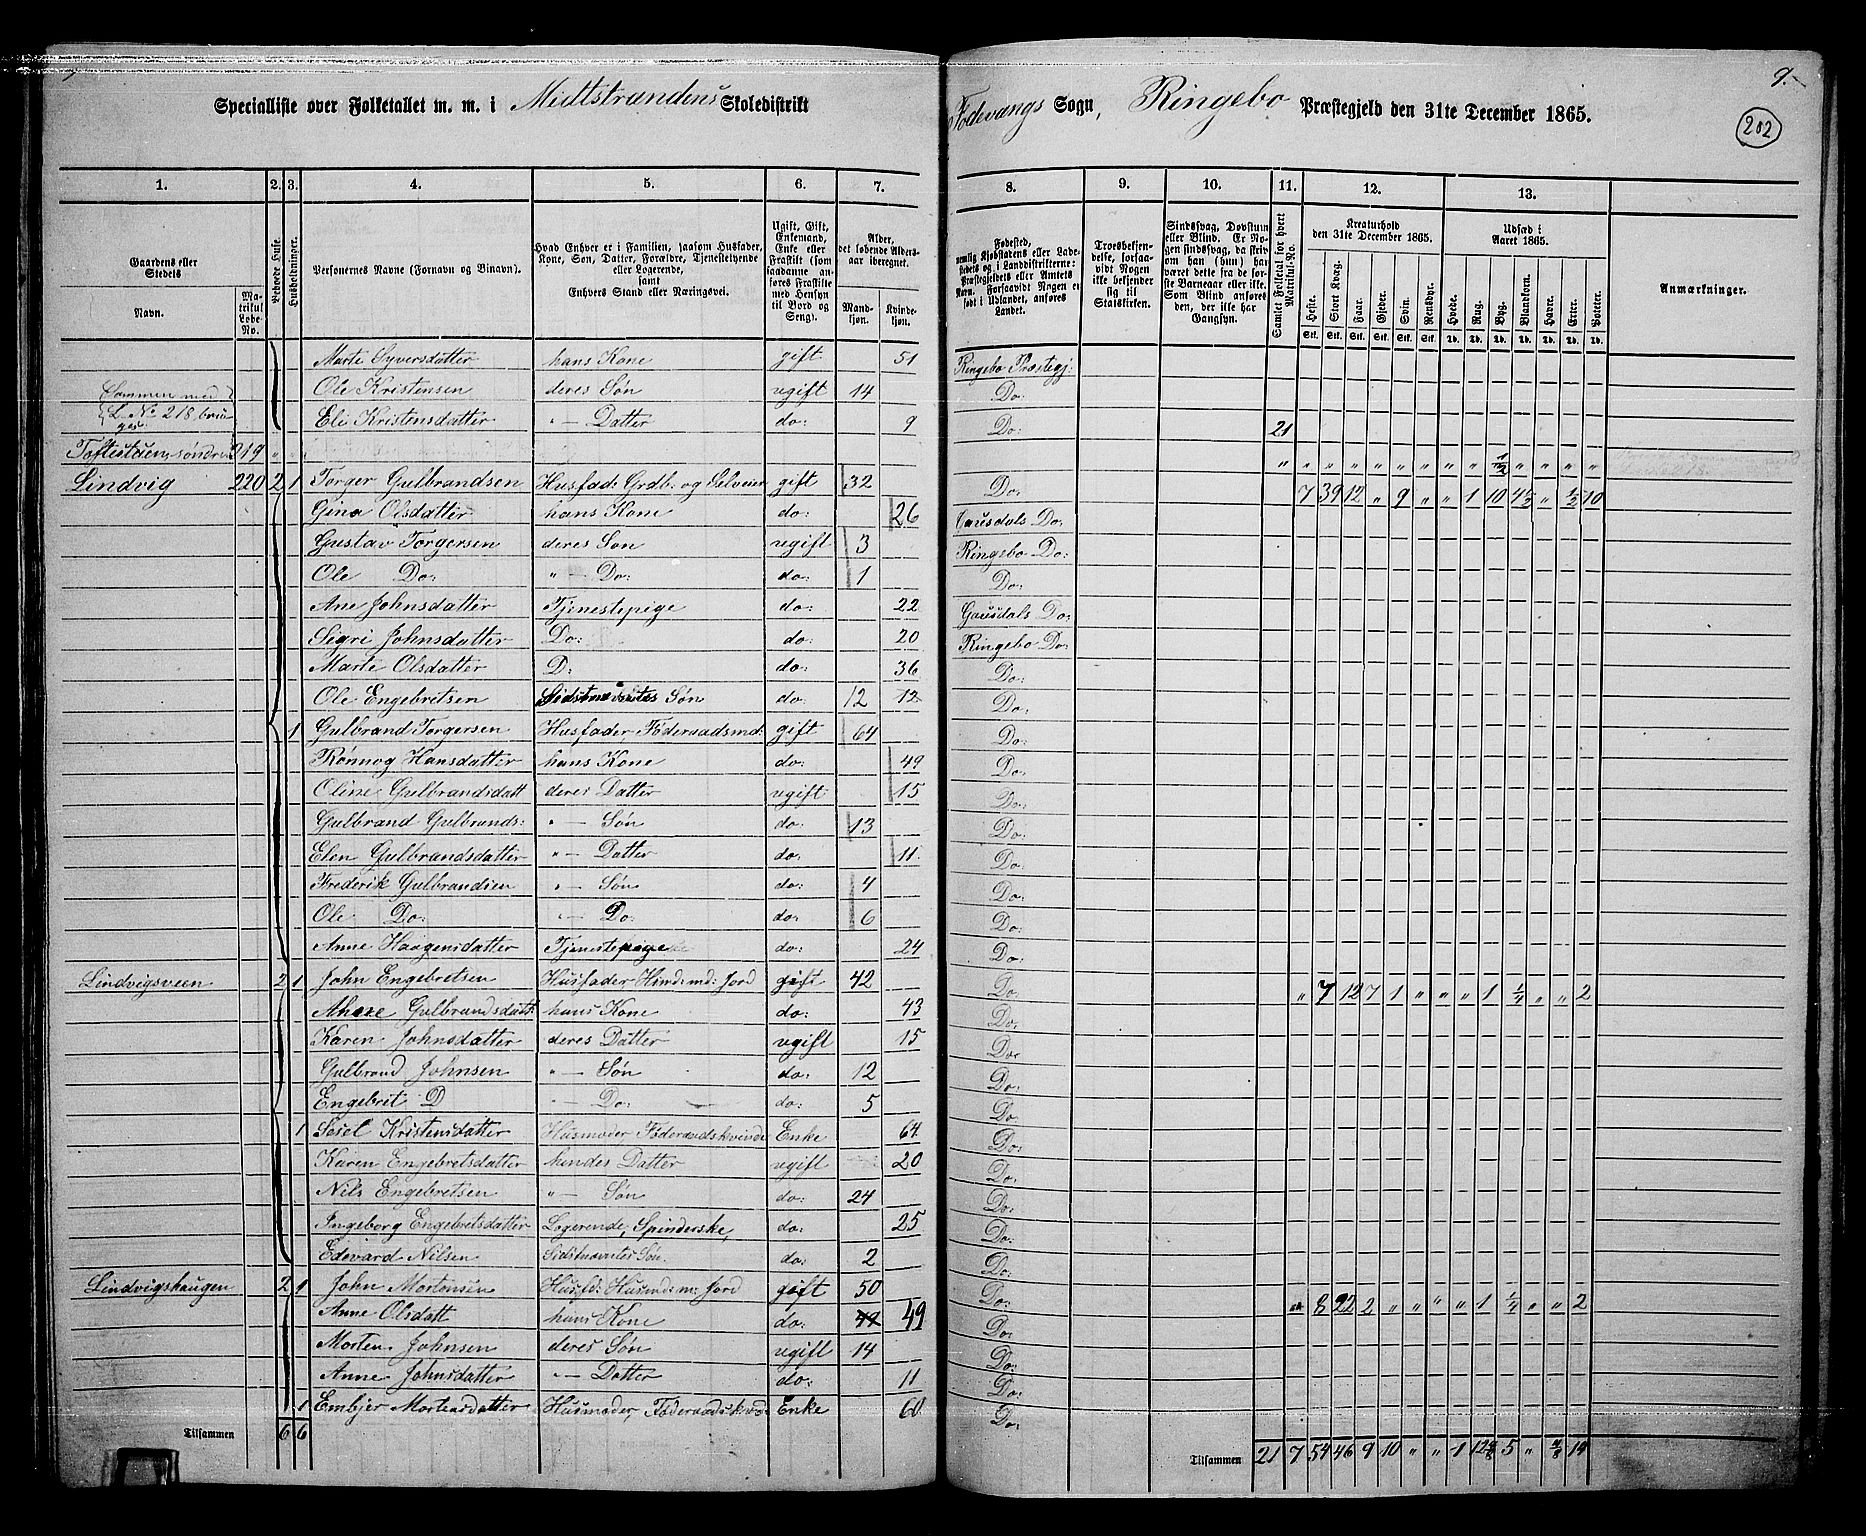 9.
202
Specialliste over Folketallet m. m. i Midtstrandens Skoledistrikt
Fodevangs Sogn, Ringebo Præstegjeld den 31te December 1865.
1. 2. 3. 4. 5. 6. 7. 8. 9. 10. 11. 12. 13.
Gaardens eller Stedets
Navn.
Matrikul Løbe-No.
Beboede Huse.
Husholdninger.
Personernes Navne (Fornavn og Binavn).
Hvad Enhver er i Familien, saasom Husfader, Kone, Søn, Datter, Forældre, Tjenestetyende eller Logerende, samt Enhvers Stand eller Næringsvei.
Ugift, Gift, Enkemand, Enke eller Fraskilt (som saadanne anføres Fraskilte med Hensyn til Bord og Seng).
Alder, det løbende Aldersaar iberegnet.
Mandkjøn. Kvindekjøn.
Fødested, nemlig Kjøbstadens eller Ladestedets og i Landdistrikterne: Præstegjeldets eller Amtets Navn. Forsaavidt Nogen er født i Udlandet, anføres Landet.
Troesbekjendelse, forsaavidt Nogen ikke bekjender sig til Statskirken.
Sindssvag, Døvstum eller Blind. Er Nogen sindssvag, da skriv om han (hun) har været dette fra de første Barneaar eller ikke. Som Blind anføres den, der ikke har Gangsyn.
Samlet Folketal for hvert Matrikul-No.
Kreaturhold den 31te December 1865.
Heste. Stort Kvæg. Faar. Gjeder. Svin. Rensdyr.
Udsæd i Aaret 1865.
Hvede. Rug. Byg. Blandkorn. Havre. Erter. Poteter.
Anmærkninger.
Marte Syversdatter hans Kone gift 51 Ringebo Præstegj:
Sammen med Ole Kristensen deres Søn ugift 14 Do:
L. No 218 bruges. Eli Kristensdatter " — Datter do: 9 Do: 21
Toftestuen søndre 219 " " " " " " " " " " " ½ " " " "
Lindvig 220 2 1 Torger Gulbrandsen Husfad: Grdb: og Selveier gift 32 Do: 7 39 12 " 9 " " 1 10 4½ " ½ 10
Gina Olsdatter hans Kone do: 26 Gausdals Do:
Gustav Torgersen deres Søn ugift 3 Ringebo Do:
Ole Do: " — Do: do: 1 Do:
Ane Johnsdatter Tjenestepige do: 22 Gausdals Do:
Sigri Johnsdatter Do: do: 20 Ringebo Do:
Marte Olsdatter D: do: 36 Do:
Ole Engebretsen Sidstnævntes Søn do 12 12 Do:
1 Gulbrand Torgersen Husfader Føderaadsmd: gift 64 Do:
Rønnog Hansdatter hans Kone do: 49 Do:
Oline Gulbrandsdatt deres Datter ugift 15 Do:
Gulbrand Gulbrands: " — Søn do: 13 Do:
Elen Gulbrandsdatter " — Datter do: 11. Do:
Frederik Gulbrandsen " — Søn do: 4 Do:
Ole Do: " — Do: do: 6 Do:
Anne Haagensdatter Tjenestepige do: 24 Do:
Lindvigsveen 2 1 John Engebretsen Husfader Husmd: md: Jord gift 42 Do: " 7 12 7 1 " " " 1 ¼ " " 2
Gulbrandsdatt: hans Kone do: 43 Do:
Karen Johnsdatter deres Datter ugift 15 Do:
Gulbrand Johnsen " — Søn do: 12 Do:
Engebret D " — Do: do: 5 Do:
1 Sesel Kristensdatter Husmoder Føderaadskvinde Enke 64 Do:
Karen Engebretsdatter hendes Datter ugift 20 Do:
Nils Engebretsen " — Søn do: 24 Do:
Ingeborg Engebretsdatter Logerende, Spinderske, do: 25 Do:
Edevard Nilsen Sidstnævntes Søn. do: 2 Do:
Lindvigshaugen 2 1 John Mortensen Husfd: Husmd: m: Jord gift 50 Do: " 8 22 2 " " " " 1 ¼ " " 2
Anne Olsdatt hans Kone do: 49 Do:
Morten Johnsen deres Søn ugift 14 Do:
Anne Johnsdatter " — Datter do: 11 Do:
1 Embjer Mortensdatter Husmoder, Føderaadskvd: Enke 60 Do:
Tilsammen 6 6
Tilsammen 21 7 54 46 9 10 " " 1 12⅝ 5 " 4/8 14